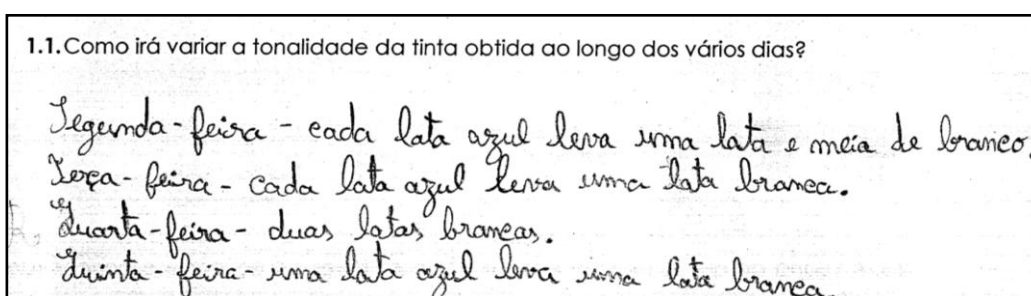 1.1. Como irá variar a tonalidade da tinta obtida ao longo dos vários dias?
Segunda-feira - cada lata azul leva uma lata e meia de branco.
Terça-feira - cada lata azul leva uma lata branca.
Quarta-feira - duas latas brancas.
Quinta-feira - uma lata azul leva uma lata branca.